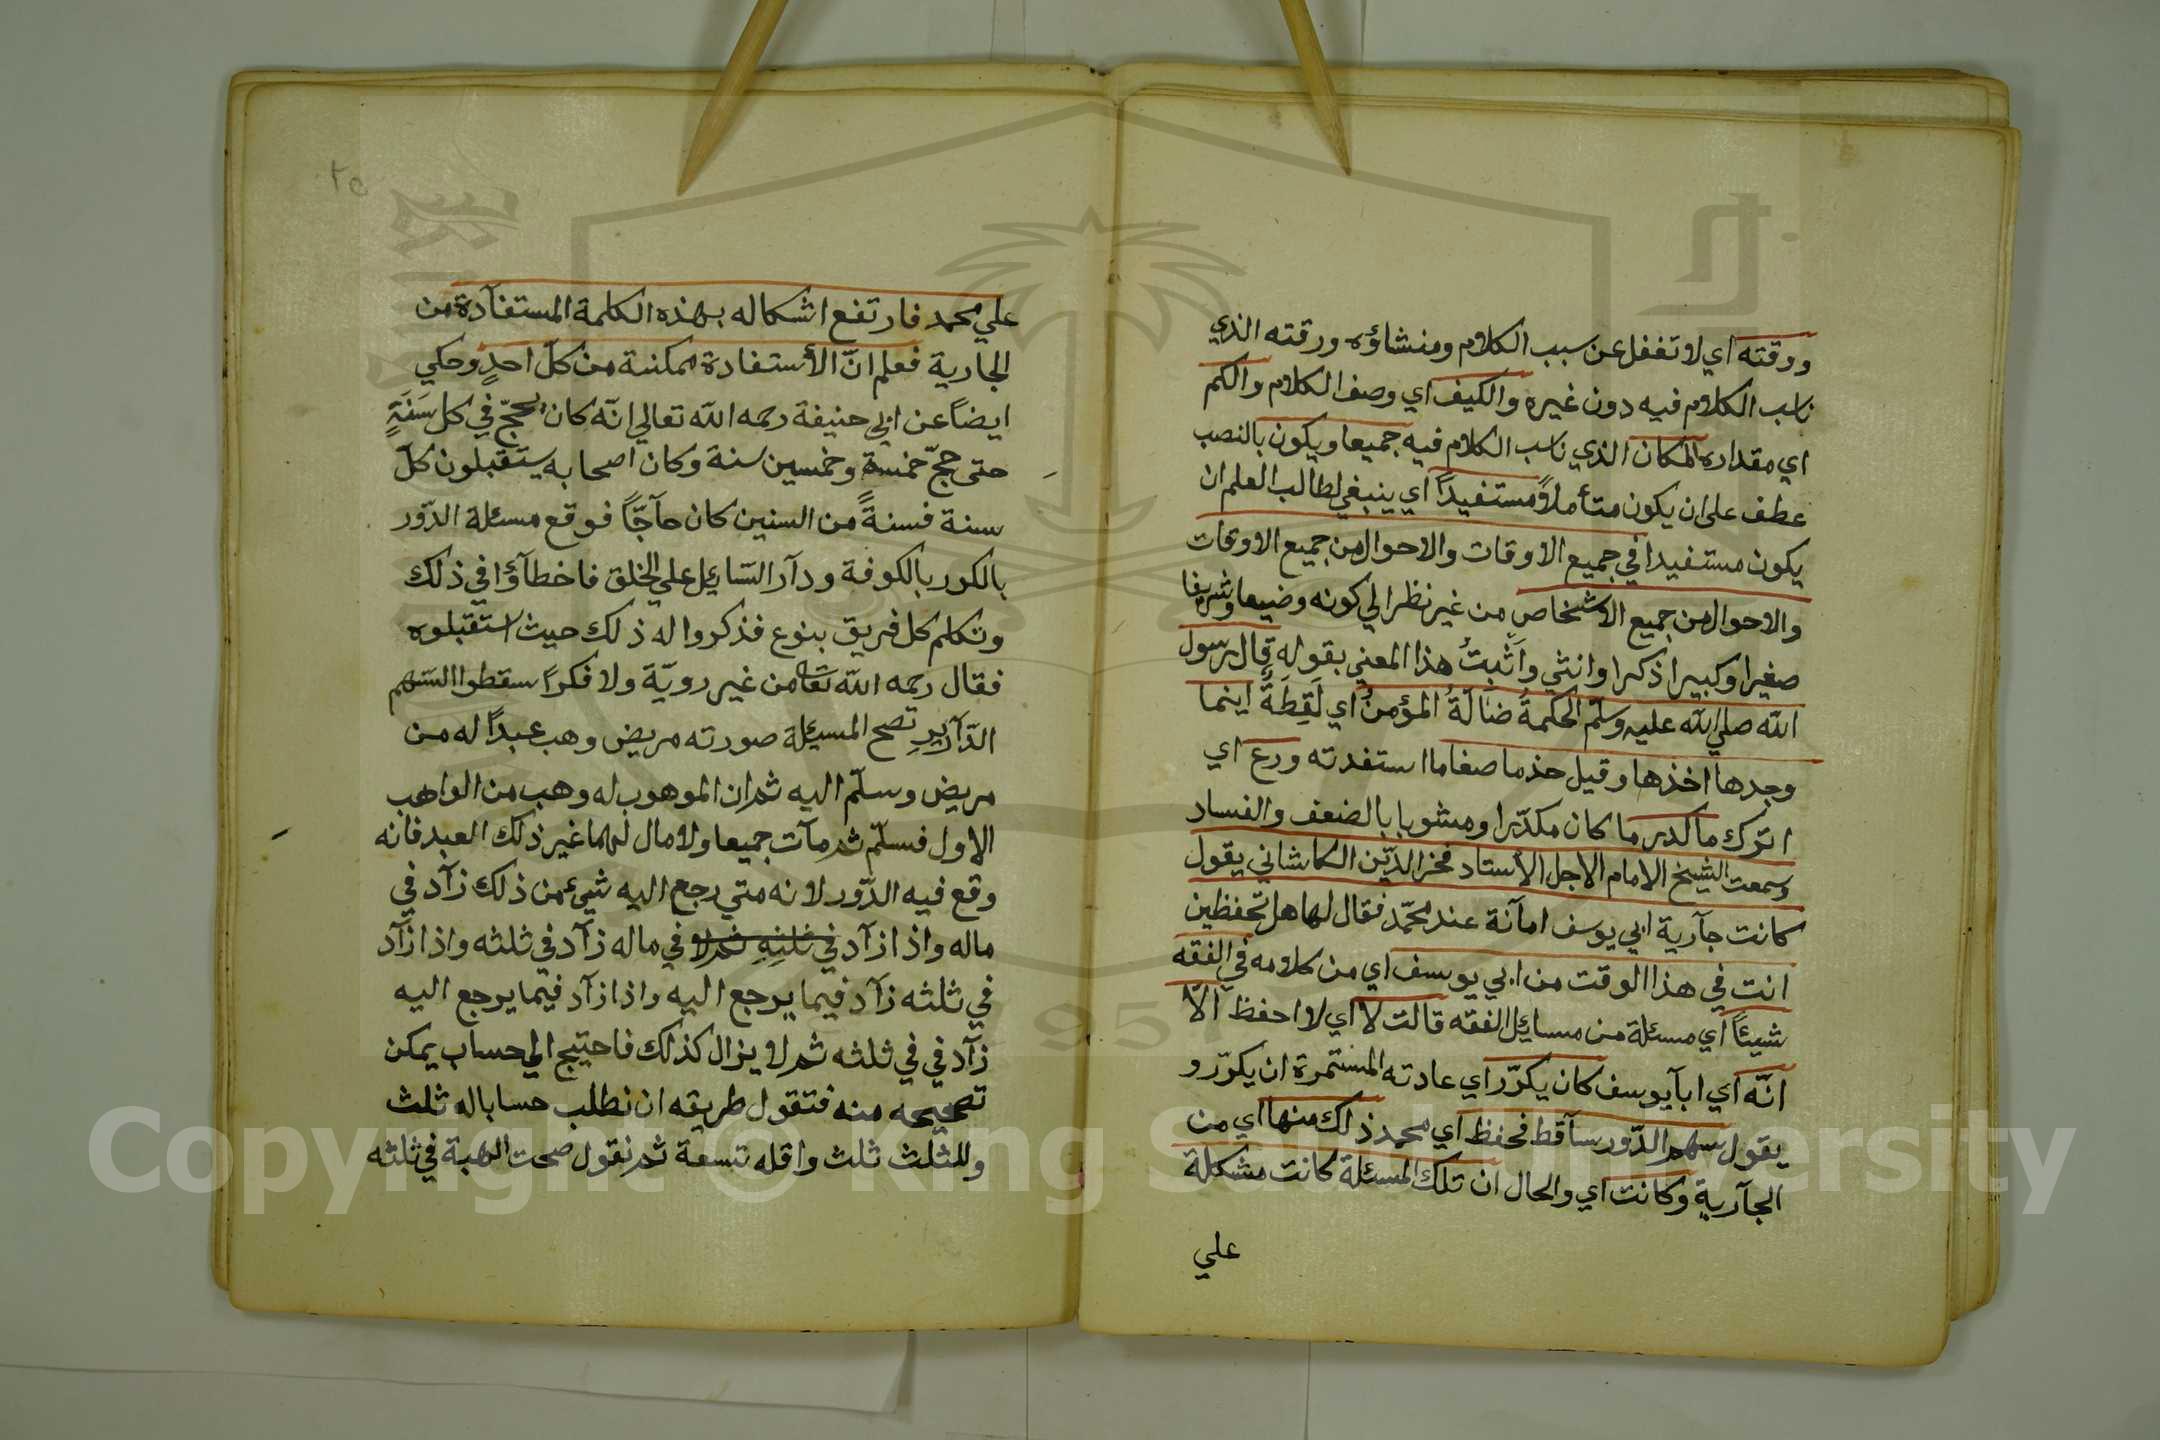 ورقته اي لا تغفل عن سبب الكلام ومنشاؤه ورقته الذي
ناسب الكلام فيه دون غيره والكيف اي وصف الكلام والكم
اي مقداره والمكان الذي ناسب الكلام فيه جميعا ويكون بالنصب
عطف على ان يكون متأملاً مستفيداً اي ينبغي لطالب العلم ان
يكون مستفيدا في جميع الاوقات والاحوال من جميع الاوقات
والاحوال من جميع الاشخاص من غير نظر الي كونه وضيعا وشريفا
صغيرا وكبيرا ذكرا وانثي واَثْبتُ هذا المعني بقوله قال رسول
الله صلي الله عليه وسلّم الحكمةُ ضالّةُ المؤمنُ اي لَقِطَةً اينما
وجدها اخذها وقيل خذ ما صفا ما استفدته ودع اي
اترك ما كدر ما كان مكدّرا ومشوبا بالضعف والفساد
وسمعت الشيخ الامام الاجل الأستاد فخر الدّين الكاشاني يقول
كانت جآرية ابي يوسف امآنة عند محمّد فقال لها هل تحفظين
انت في هذا الوقت من ابي يوسف اي من كلامه في الفقه
شيئاً اي مسئلة من مسايل الفقه قالت لا اي لا احفظ الّا
انّه اي ابآ يوسف كان يكرّر اي عادته المستمرة ان يكرّر و
يقول سهم الدّور سآقط فحفظ اي محمد ذلك منها اي من
الجآرية وكانت اي والحال ان تلك المسئلة كانت مشكلة
علي
٢٥
علي محمد فارتفع اشكاله بهذه الكلمة المستفآدة من
الجارية فعلم انّ الأستفادة ممكنة من كلّ احدٍ وحكي
ايضاً عن ابي حنيفة رحمه الله تعالي انّه كان يحجّ في كل سَنَةٍ
حتى حجّ خمسة وخمسين سنة وكان اصحابه يستقبلون كلّ
سنة فسنةً من السنين كان حآجّاً فوقع مسئلة الدّور
بالكور بالكوفة ودآر السّايل علي الخلق فاخطآؤا في ذلك
وتكلم كل فريق بنوع فذكروا له ذلك حيث استقبلوه
فقال رحمه الله تعا من غير رويّة ولا فكراً سقطوا السّهم
الدّآير تصح المسئلة صورته مريض وهب عبداً له من
مريض وسلّم اليه ثم ان الموهوب له وهب من الواهب
الاول فسلّم ثم مآت جميعا ولا مال لهما غير ذلك العبد فانه
وقع فيه الدّور لانه متي رجع اليه شيء من ذلك زآد في
ماله واذا زآد في ثلثه ثم لا في ماله زآد في ثلثه واذا زآد
في ثلثه زآد فيما يرجع اليه واذا زآد فيما يرجع اليه
زآد في في ثلثه ثم لا يزال كذلك فاحتيج الي حساب يمكن
تصحيحه منه فتقول طريقه ان نطلب حسابا له ثلث
وللمثلث ثلث واقله تسعة ثم نقول صحت الهبة في ثلثه
Copyright © King Saud University
1957